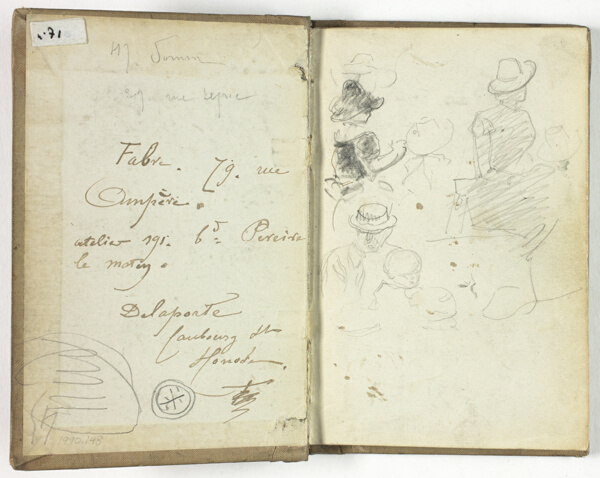 1.71
rue Lepic
Fabre. 79. rue
Ampère.
atelier 191. bd Pereire
le matin.
Delaporte
faubourg St
Honoré.
1992.148